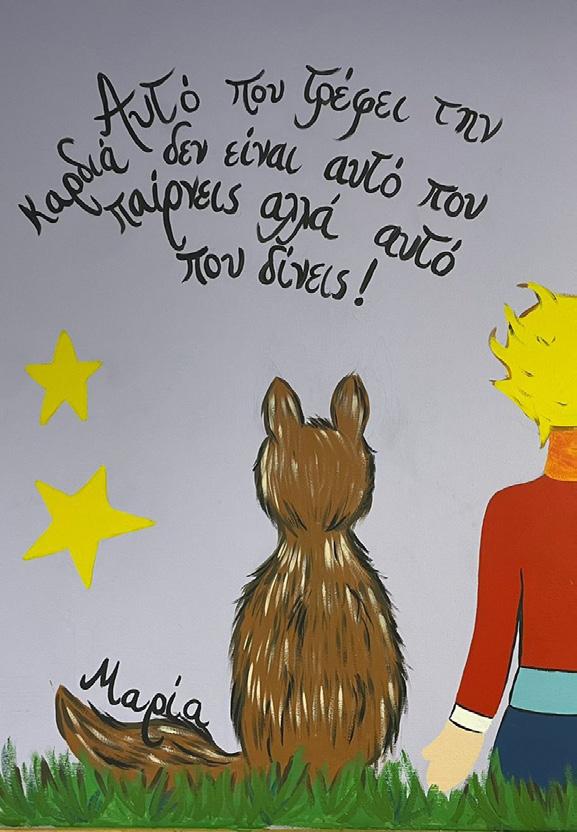 Αυτό που τρέφει την
καρδιά δεν είναι αυτό που
παίρνεις αλλά αυτό
που δίνεις!
Μαρία